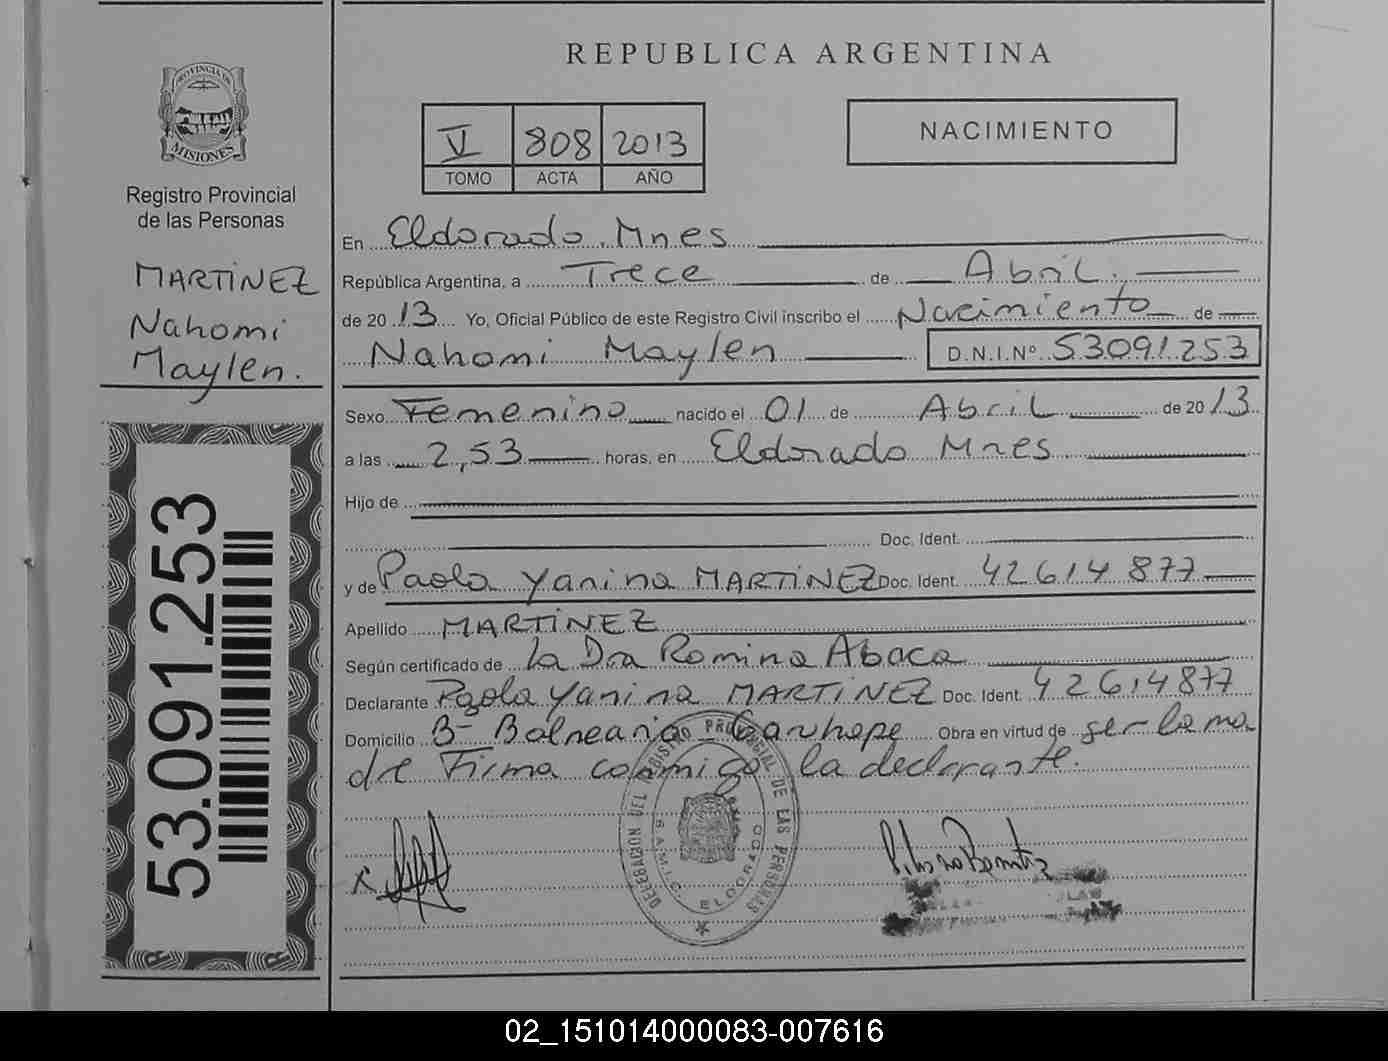 REPUBLICA ARGENTINA
PROVINCIA DE
MISIONES
Registro Provincial
de las Personas
MARTINEZ
Nahomi
Maylen.
53.091.253
V 808 2013
TOMO ACTA AÑO
NACIMIENTO
En Eldorado. Mnes
República Argentina, a Trece de Abril.
de 2013 Yo, Oficial Público de este Registro Civil inscribo el Nacimiento de
Nahomi Maylen D.N.I.Nº 53091253
Sexo Femenino nacido el 01 de Abril de 2013
a las 2,53 horas, en Eldorado Mnes
Hijo de
Doc. Ident.
y de Paola Yanina MARTINEZ Doc. Ident. 42614877
Apellido MARTINEZ
Según certificado de La Dra Romina Abaca
Declarante Paola Yanina MARTINEZ Doc. Ident. 42614877
Domicilio B- Balneario Garuhape Obra en virtud de ser la ma
dre Firma conmigo la declarante.
DELEGACION DEL REGISTRO PROVINCIAL DE LAS PERSONAS
S.A.M.I.C. ELDORADO
02_151014000083-007616